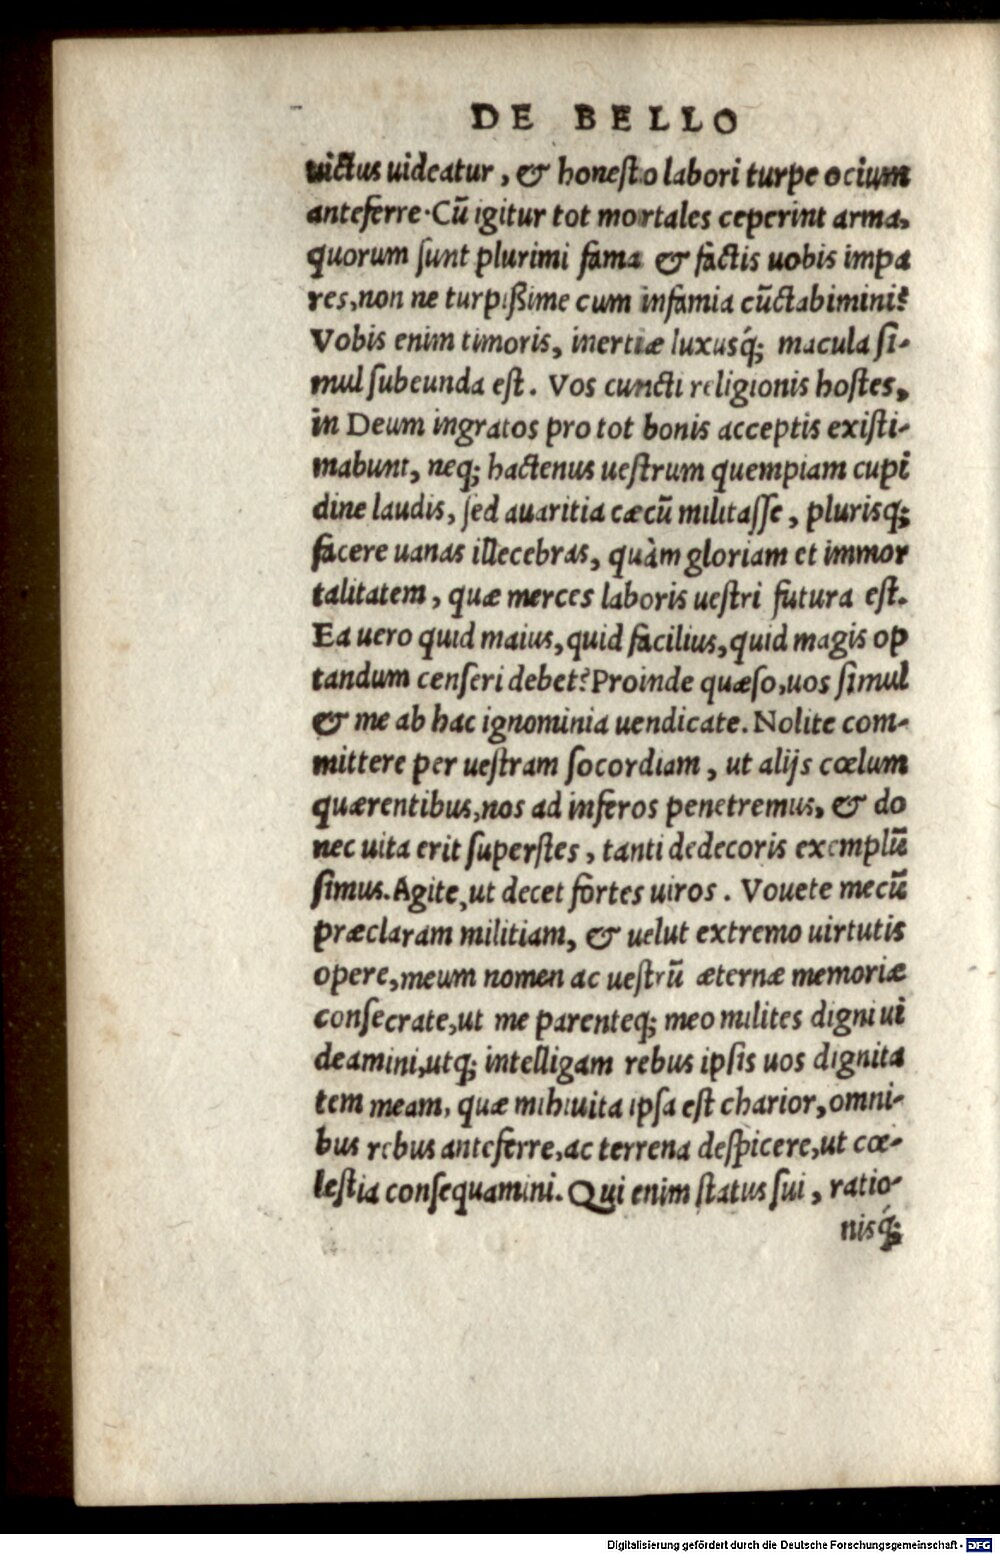 DE BELLO
uictus uideatur, & honesto labori turpe ocium
anteferre. Cũ igitur tot mortales ceperint arma,
quorum sunt plurimi fama & factis uobis impa
res, non ne turpißime cum infamia cũctabimini?
Vobis enim timoris, inertiæ luxusq́; macula si-
mul subeunda est. Vos cuncti religionis hostes,
in Deum ingratos pro tot bonis acceptis existi-
mabunt, neq; hactenus uestrum quempiam cupi
dine laudis, sed auaritia cæcũ militasse, plurisq́;
facere uanas illecebras, quàm gloriam et immor
talitatem, quæ merces laboris uestri futura est.
Ea uero quid maius, quid facilius, quid magis op
tandum censeri debet? Proinde quæso, uos simul
& me ab hac ignominia uendicate. Nolite com-
mittere per uestram socordiam, ut alijs cœlum
quærentibus, nos ad inferos penetremus, & do
nec uita erit superstes, tanti dedecoris exemplũ
simus. Agite, ut decet fortes uiros. Vouete mecũ
præclaram militiam, & uelut extremo uirtutis
opere, meum nomen ac uestrũ æternæ memoriæ
consecrate, ut me parenteq; meo milites digni ui
deamini, utq; intelligam rebus ipsis uos dignita
tem meam, quæ mihi uita ipsa est charior, omni-
bus rebus anteferre, ac terrena despicere, ut cœ-
lestia consequamini. Qui enim status sui, ratio-
nisq́;
Digitalisierung gefördert durch die Deutsche Forschungsgemeinschaft - DFG